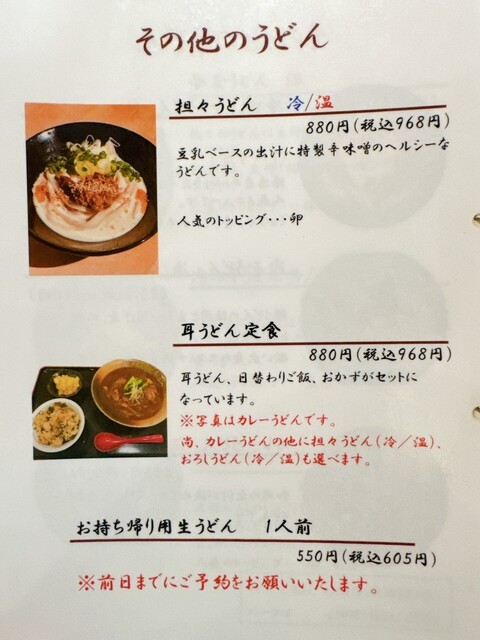 その他のうどん
担々うどん 冷/温
880円(税込968円)
豆乳ベースの出汁に特製辛味噌のヘルシーな
うどんです。
人気のトッピング･･･卵
耳うどん定食
880円(税込968円)
耳うどん、日替わりご飯、おかずがセットに
なっています。
※写真はカレーうどんです。
尚、カレーうどんの他に担々うどん(冷/温)、
おろしうどん(冷/温)も選べます。
お持ち帰り用生うどん 1人前
550円(税込605円)
※前日までにご予約をお願いいたします。